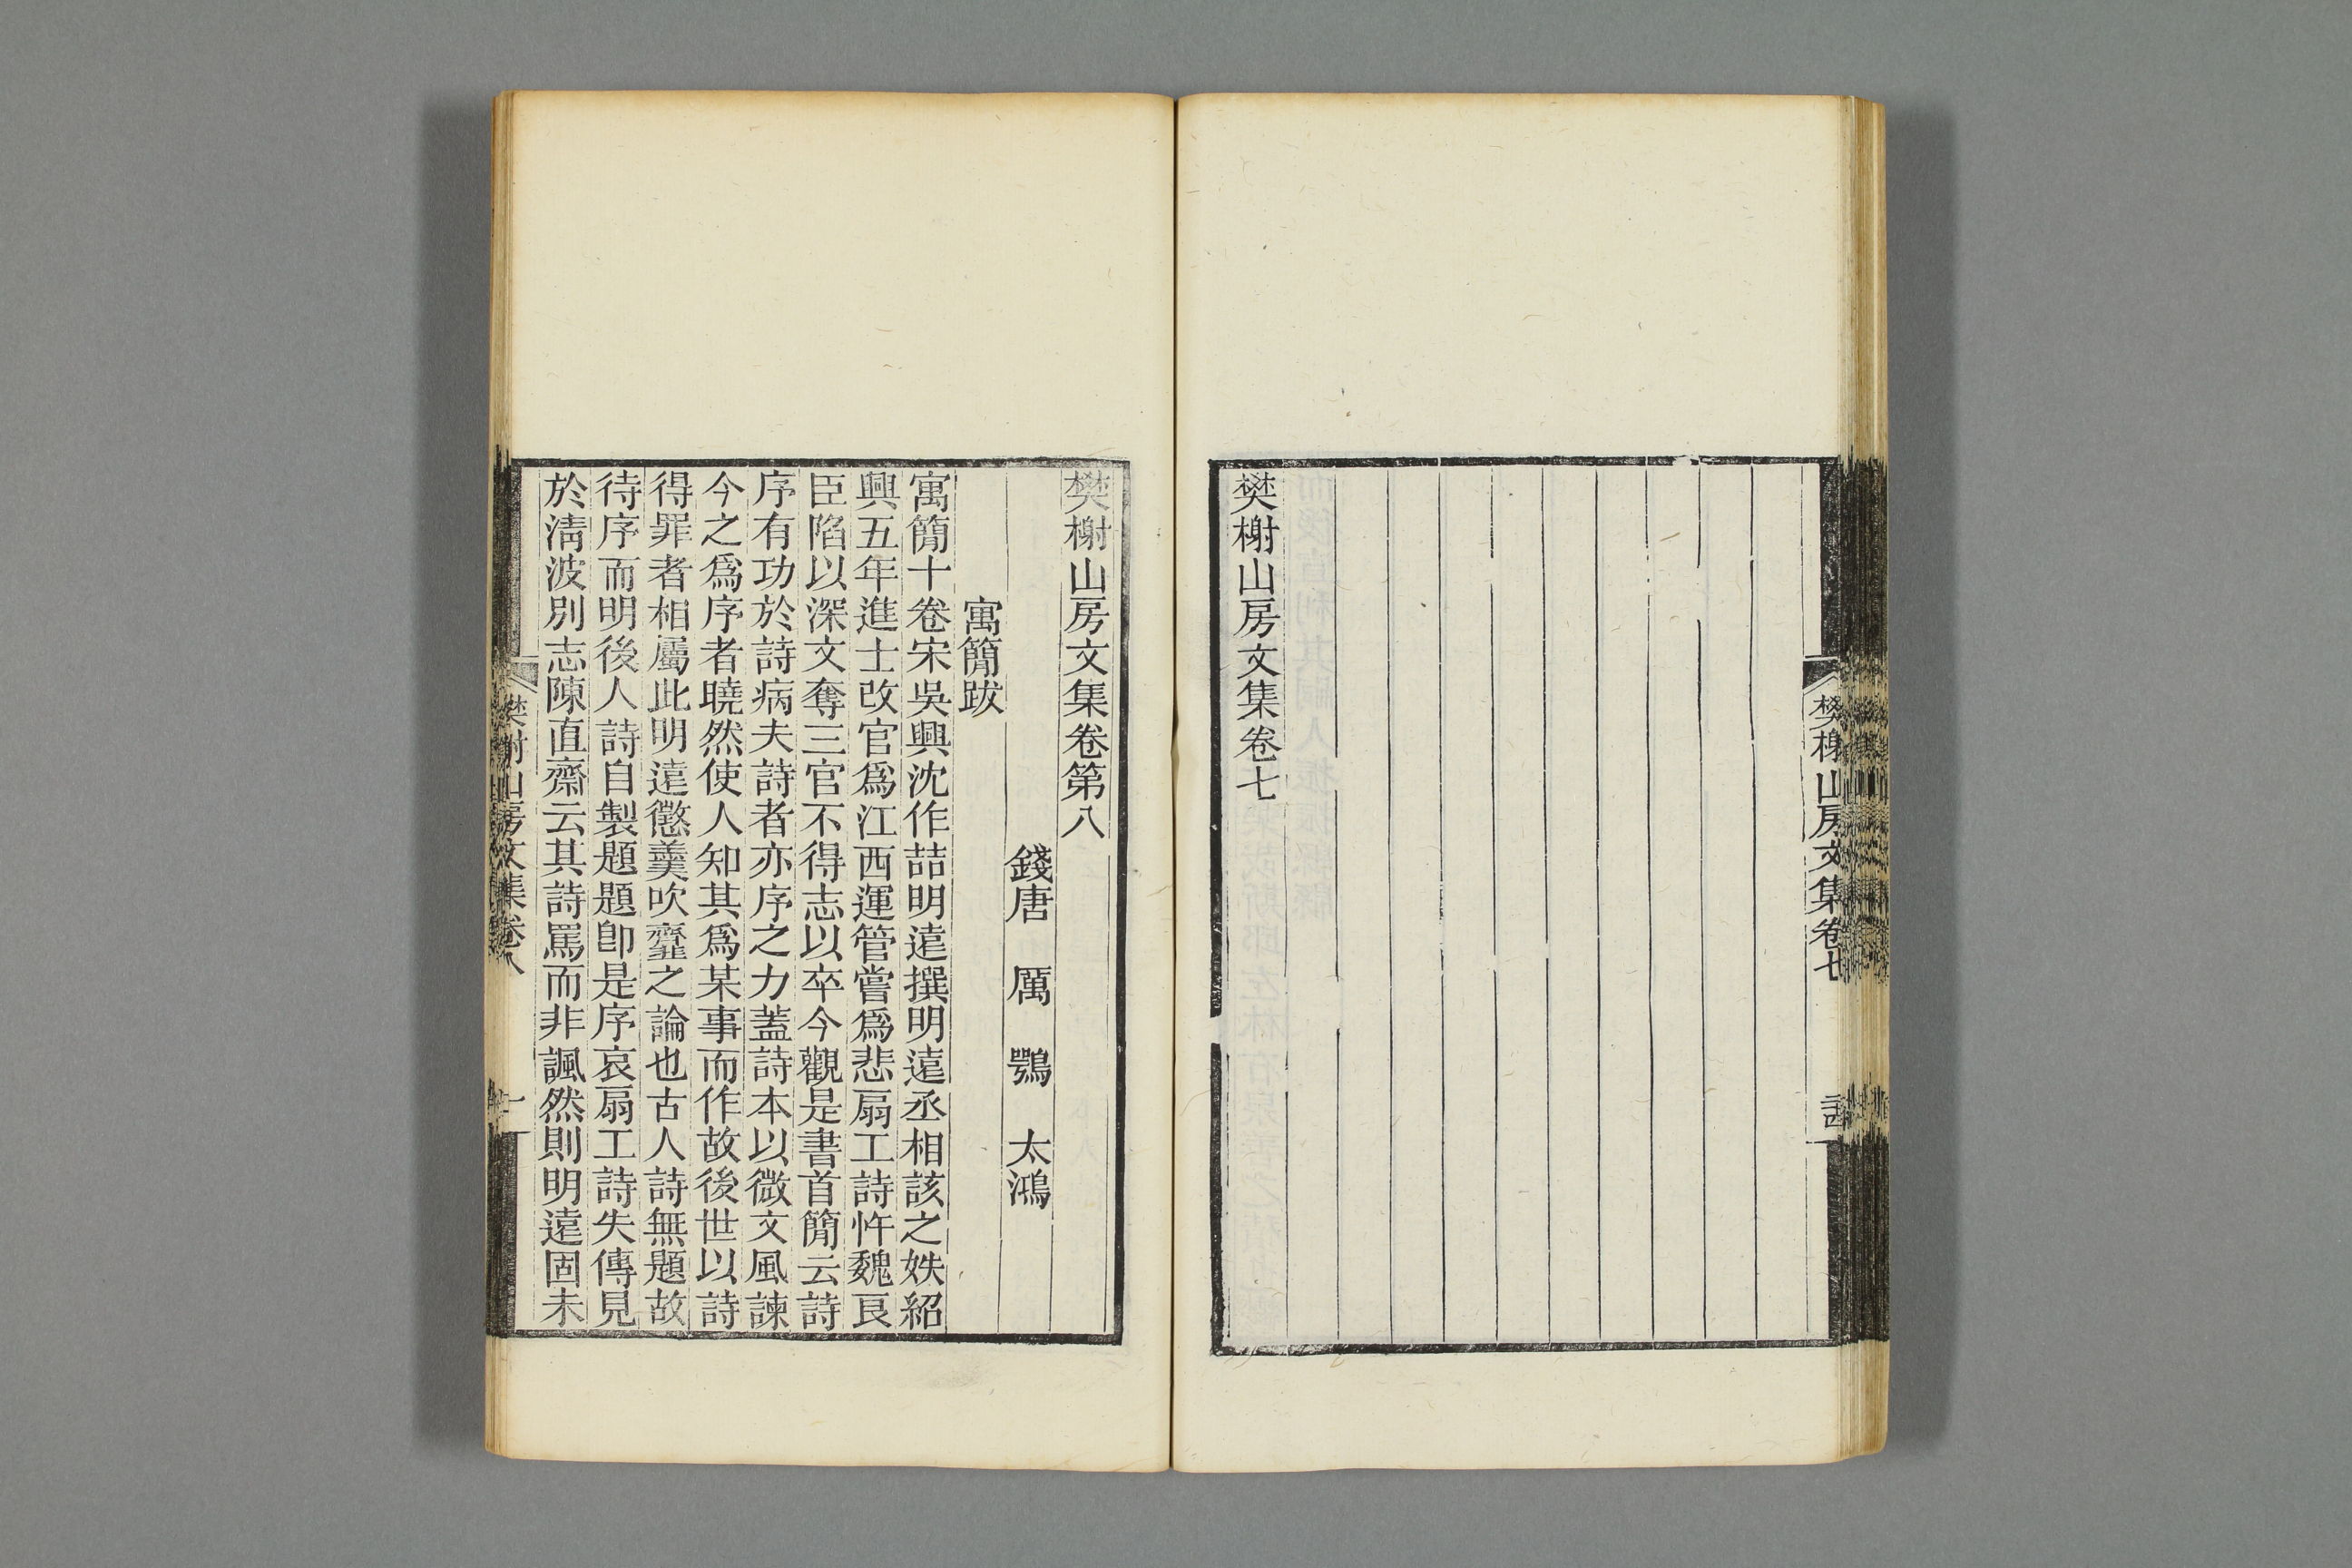 樊榭山房文集卷七
二十四
樊榭山房文集卷七
樊榭山房文集卷第八
錢唐　厲　鶚　太鴻
寓簡跋
寓簡十卷宋吳興沈作喆明遠撰明遠丞相該之姪紹
興五年進士改官爲江西運管嘗爲悲扇工詩忤魏良
臣陷以深文奪三官不得志以卒今觀是書首簡云詩
序有功於詩病夫詩者亦序之力蓋詩本以微文風諫
今之爲序者曉然使人知其爲某事而作故後世以詩
得罪者相屬此明遠懲羹吹虀之論也古人詩無題故
待序而明後人詩自製題題卽是序哀扇工詩失傳見
於淸波別志陳直齋云其詩罵而非諷然則明遠固未
樊榭山房文集卷八
一